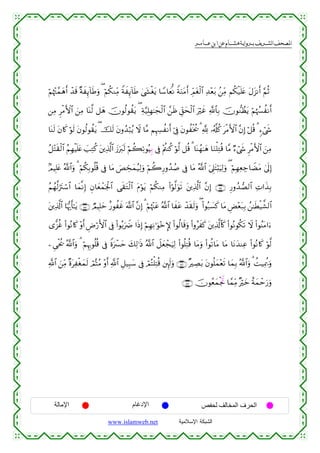 المصحف الشريف برواية هشام عن ابن عامر
ثُمَّ أَنزَلَ عَلَيْكُم مِّنۢ بَعْدِ ٱلْغَمِّ أَمَنَةً نُّعَاسًا يَغْشَىٰ طَآئِفَةً مِّنكُمْ ۖ وَطَآئِفَةٌ قَدْ أَهَمَّتْهُمْ
أَنفُسُهُمْ يَظُنُّونَ بِٱللَّهِ غَيْرَ ٱلْحَقِّ ظَنَّ ٱلْجَٰهِلِيَّةِ ۖ يَقُولُونَ هَل لَّنَا مِنَ ٱلْأَمْرِ مِن
شَىْءٍ ۗ قُلْ إِنَّ ٱلْأَمْرَ كُلَّهُۥ لِلَّهِ ۗ يُخْفُونَ فِىٓ أَنفُسِهِم مَّا لَا يُبْدُونَ لَكَ ۖ يَقُولُونَ لَوْ كَانَ لَنَا
مِنَ ٱلْأَمْرِ شَىْءٌ مَّا قُتِلْنَا هَٰهُنَا ۗ قُل لَّوْ كُنتُمْ فِى بِيُوتِكُمْ لَبَرَزَ ٱلَّذِينَ كُتِبَ عَلَيْهِمُ ٱلْقَتْلُ
إِلَىٰ مَضَاجِعِهِمْ ۖ وَلِيَبْتَلِىَ ٱللَّهُ مَا فِى صُدُورِكُمْ وَلِيُمَحِّصَ مَا فِى قُلُوبِكُمْ ۗ وَٱللَّهُ عَلِيمٌۢ
بِذَاتِ ٱلصُّدُورِ إِنَّ ٱلَّذِينَ تَوَلَّوْا۟ مِنكُمْ يَوْمَ ٱلْتَقَى ٱلْجَمْعَانِ إِنَّمَا ٱسْتَزَلَّهُمُ
ٱلشَّيْطَٰنُ بِبَعْضِ مَا كَسَبُوا۟ ۖ وَلَقَدْ عَفَا ٱللَّهُ عَنْهُمْ ۗ إِنَّ ٱللَّهَ غَفُورٌ حَلِيمٌ يَٰٓأَيُّهَا ٱلَّذِينَ
ءَامَنُوا۟ لَا تَكُونُوا۟ كَٱلَّذِينَ كَفَرُوا۟ وَقَالُوا۟ لِإِخْوَٰنِهِمْ إِذَا ضَرَبُوا۟ فِى ٱلْأَرْضِ أَوْ كَانُوا۟ غُزًّى
لَّوْ كَانُوا۟ عِندَنَا مَا مَاتُوا۟ وَمَا قُتِلُوا۟ لِيَجْعَلَ ٱللَّهُ ذَٰلِكَ حَسْرَةً فِى قُلُوبِهِمْ ۗ وَٱللَّهُ يُحْىِۦ
وَيُمِيتُ ۗ وَٱللَّهُ بِمَا تَعْمَلُونَ بَصِيرٌ وَلَئِن قُتِلْتُمْ فِى سَبِيلِ ٱللَّهِ أَوْ مُتُّمْ لَمَغْفِرَةٌ مِّنَ ٱللَّهِ
وَرَحْمَةٌ خَيْرٌ مِّمَّا تَجْمَعُونَ
الحرف المخالف لحفص الإدغام الإمالة
الشبكة الإسلامية www.islamweb.net